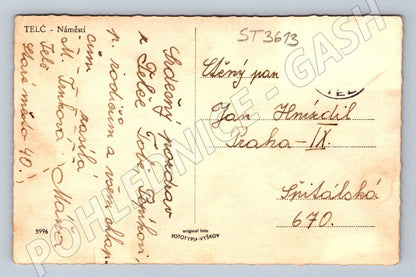 TELČ - Náměstí
ST3613
Srdečný pozdrav
z Telče Tobě
p. rodičům a všem
cům zasílá
M.
Telč
Staré město 40.
Ctěný pan
Jan Hnízdil
Praha-IX.
Špitálská
670.
TELČ
5996
original foto
FOTOTYPIA-VYŠKOV
POHLEDNICE - GASH